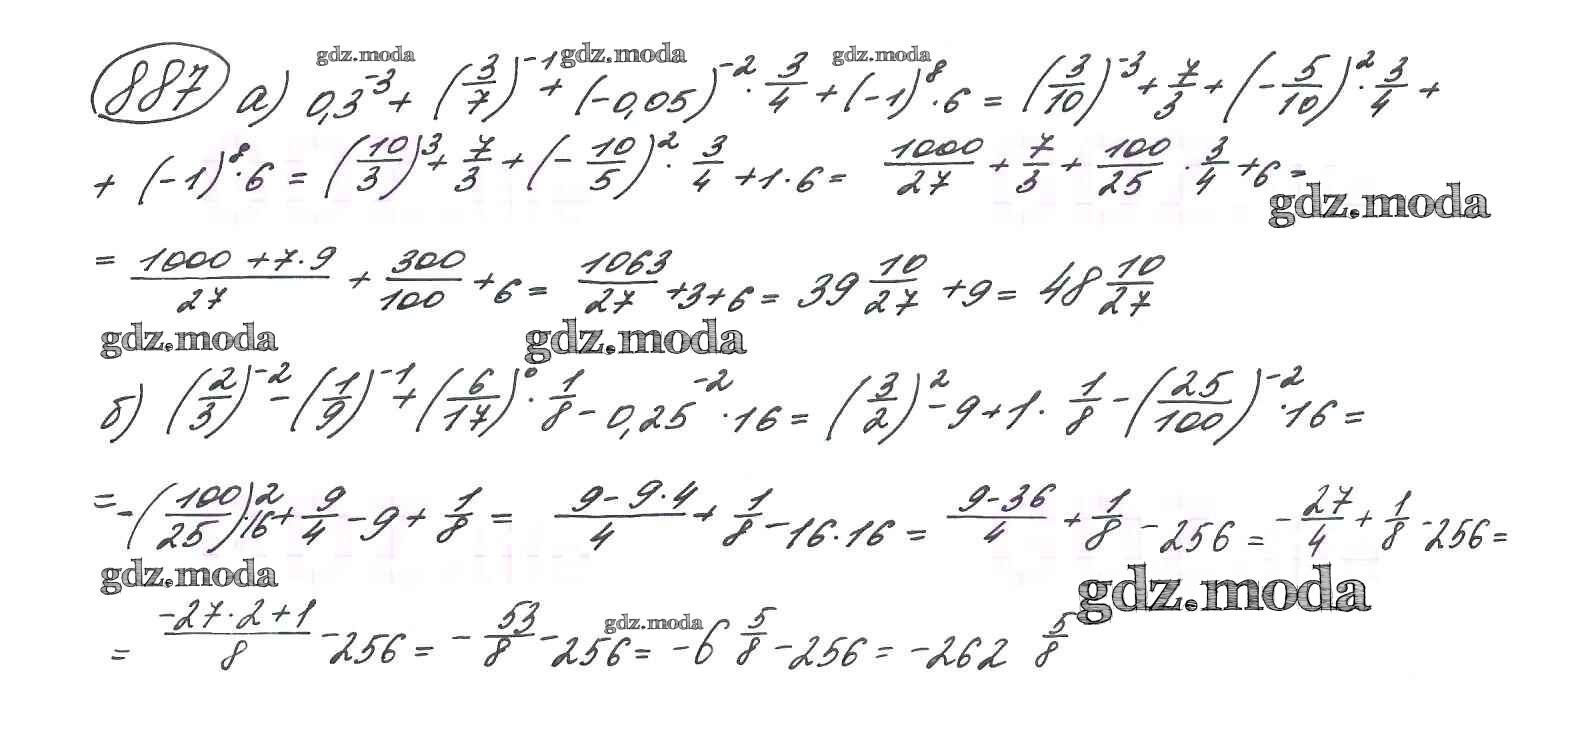 gdz.moda gdz.moda gdz.moda
887 а) 0,3^-3 + (3/7)^-1 + (-0,05)^-2 · 3/4 + (-1)^8 · 6 = (3/10)^-3 + 7/3 + (-5/10)^2 · 3/4 +
+ (-1)^8 · 6 = (10/3)^3 + 7/3 + (-10/5)^2 · 3/4 + 1 · 6 = 1000/27 + 7/3 + 100/25 · 3/4 + 6 =
gdz.moda
= (1000 + 7·9)/27 + 300/100 + 6 = 1063/27 + 3 + 6 = 39 10/27 + 9 = 48 10/27
gdz.moda gdz.moda
б) (2/3)^-2 - (1/9)^-1 + (6/17)^0 · 1/8 - 0,25^-2 · 16 = (3/2)^2 - 9 + 1 · 1/8 - (25/100)^-2 · 16 =
= -(100/25)^2 · 16 + 9/4 - 9 + 1/8 = (9 - 9·4)/4 + 1/8 - 16·16 = (9-36)/4 + 1/8 - 256 = -27/4 + 1/8 - 256 =
gdz.moda gdz.moda
= (-27·2+1)/8 - 256 = -53/8 - 256 = -6 5/8 - 256 = -262 5/8
gdz.moda